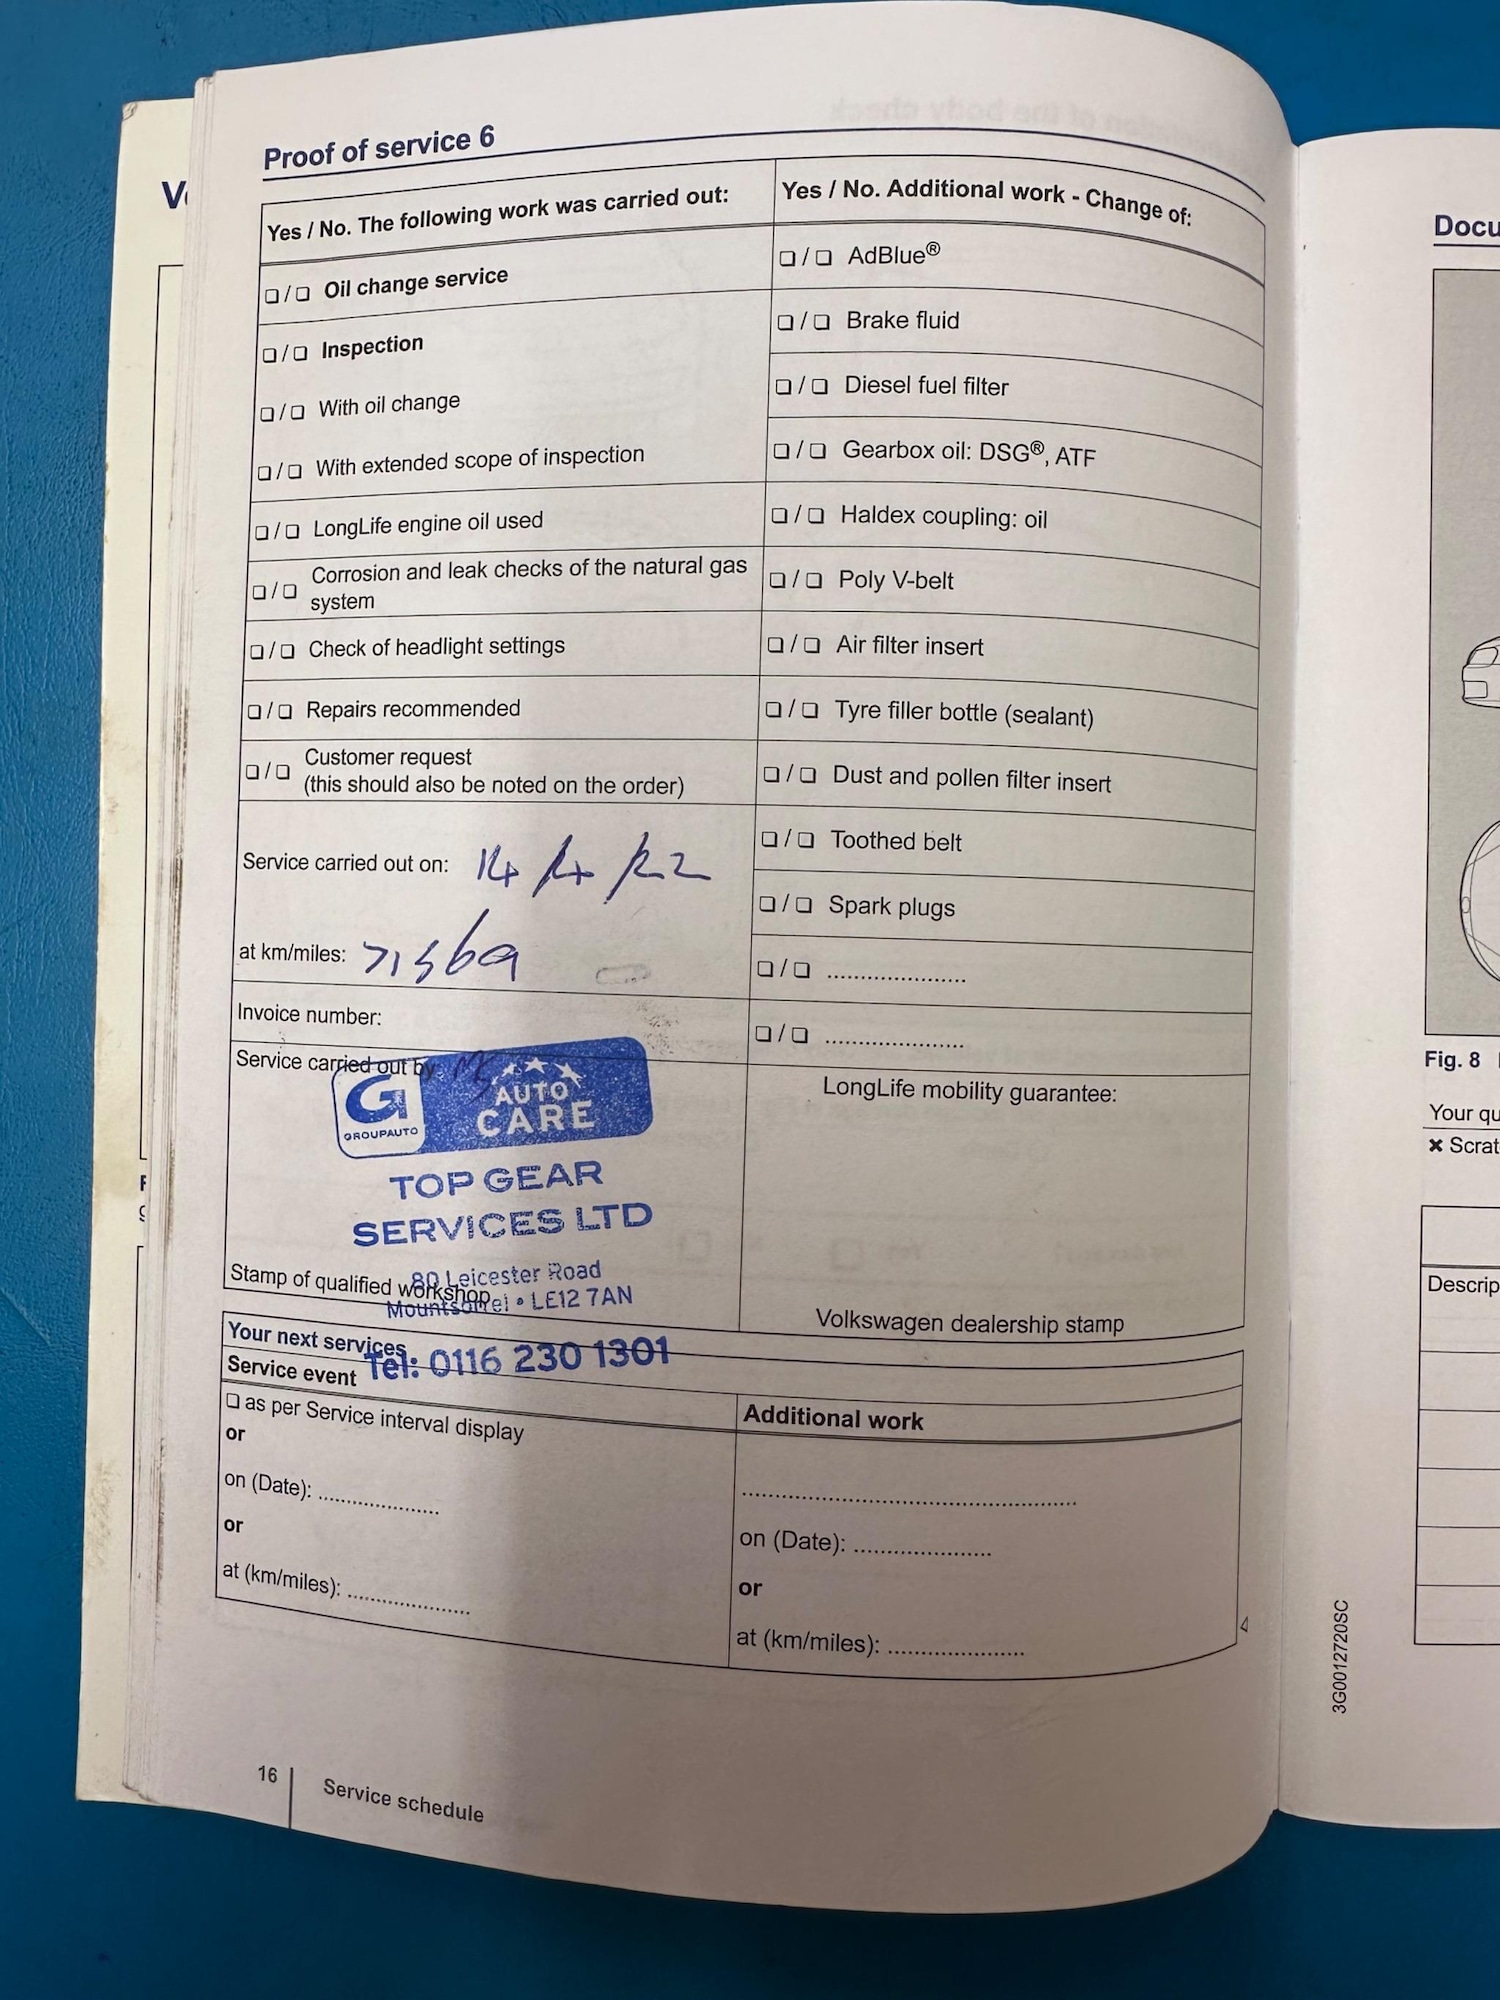 Proof of service 6
Yes / No. The following work was carried out:
❏ / ❏ Oil change service
❏ / ❏ Inspection
❏ / ❏ With oil change
❏ / ❏ With extended scope of inspection
❏ / ❏ LongLife engine oil used
❏ / ❏ Corrosion and leak checks of the natural gas
system
❏ / ❏ Check of headlight settings
❏ / ❏ Repairs recommended
❏ / ❏ Customer request
(this should also be noted on the order)
Service carried out on: 14/4/22
at km/miles:
Invoice number:
Service carried out by
G
GROUPAUTO
AUTO
CARE
TOP GEAR
SERVICES LTD
80 Leicester Road
Mountsorrel • LE12 7AN
Tel: 0116 230 1301
Stamp of qualified workshop
Yes / No. Additional work - Change of:
❏ / ❏ AdBlue®
❏ / ❏ Brake fluid
❏ / ❏ Diesel fuel filter
❏ / ❏ Gearbox oil: DSG®, ATF
❏ / ❏ Haldex coupling: oil
❏ / ❏ Poly V-belt
❏ / ❏ Air filter insert
❏ / ❏ Tyre filler bottle (sealant)
❏ / ❏ Dust and pollen filter insert
❏ / ❏ Toothed belt
❏ / ❏ Spark plugs
❏ / ❏ .....................
❏ / ❏ .....................
LongLife mobility guarantee:
Volkswagen dealership stamp
Your next services
Service event
❏ as per Service interval display
or
on (Date): ..................
or
at (km/miles): ..................
Additional work
..................................................
on (Date): .....................
or
at (km/miles): .....................
16
Service schedule
3G0012720SC
Fig. 8
Your